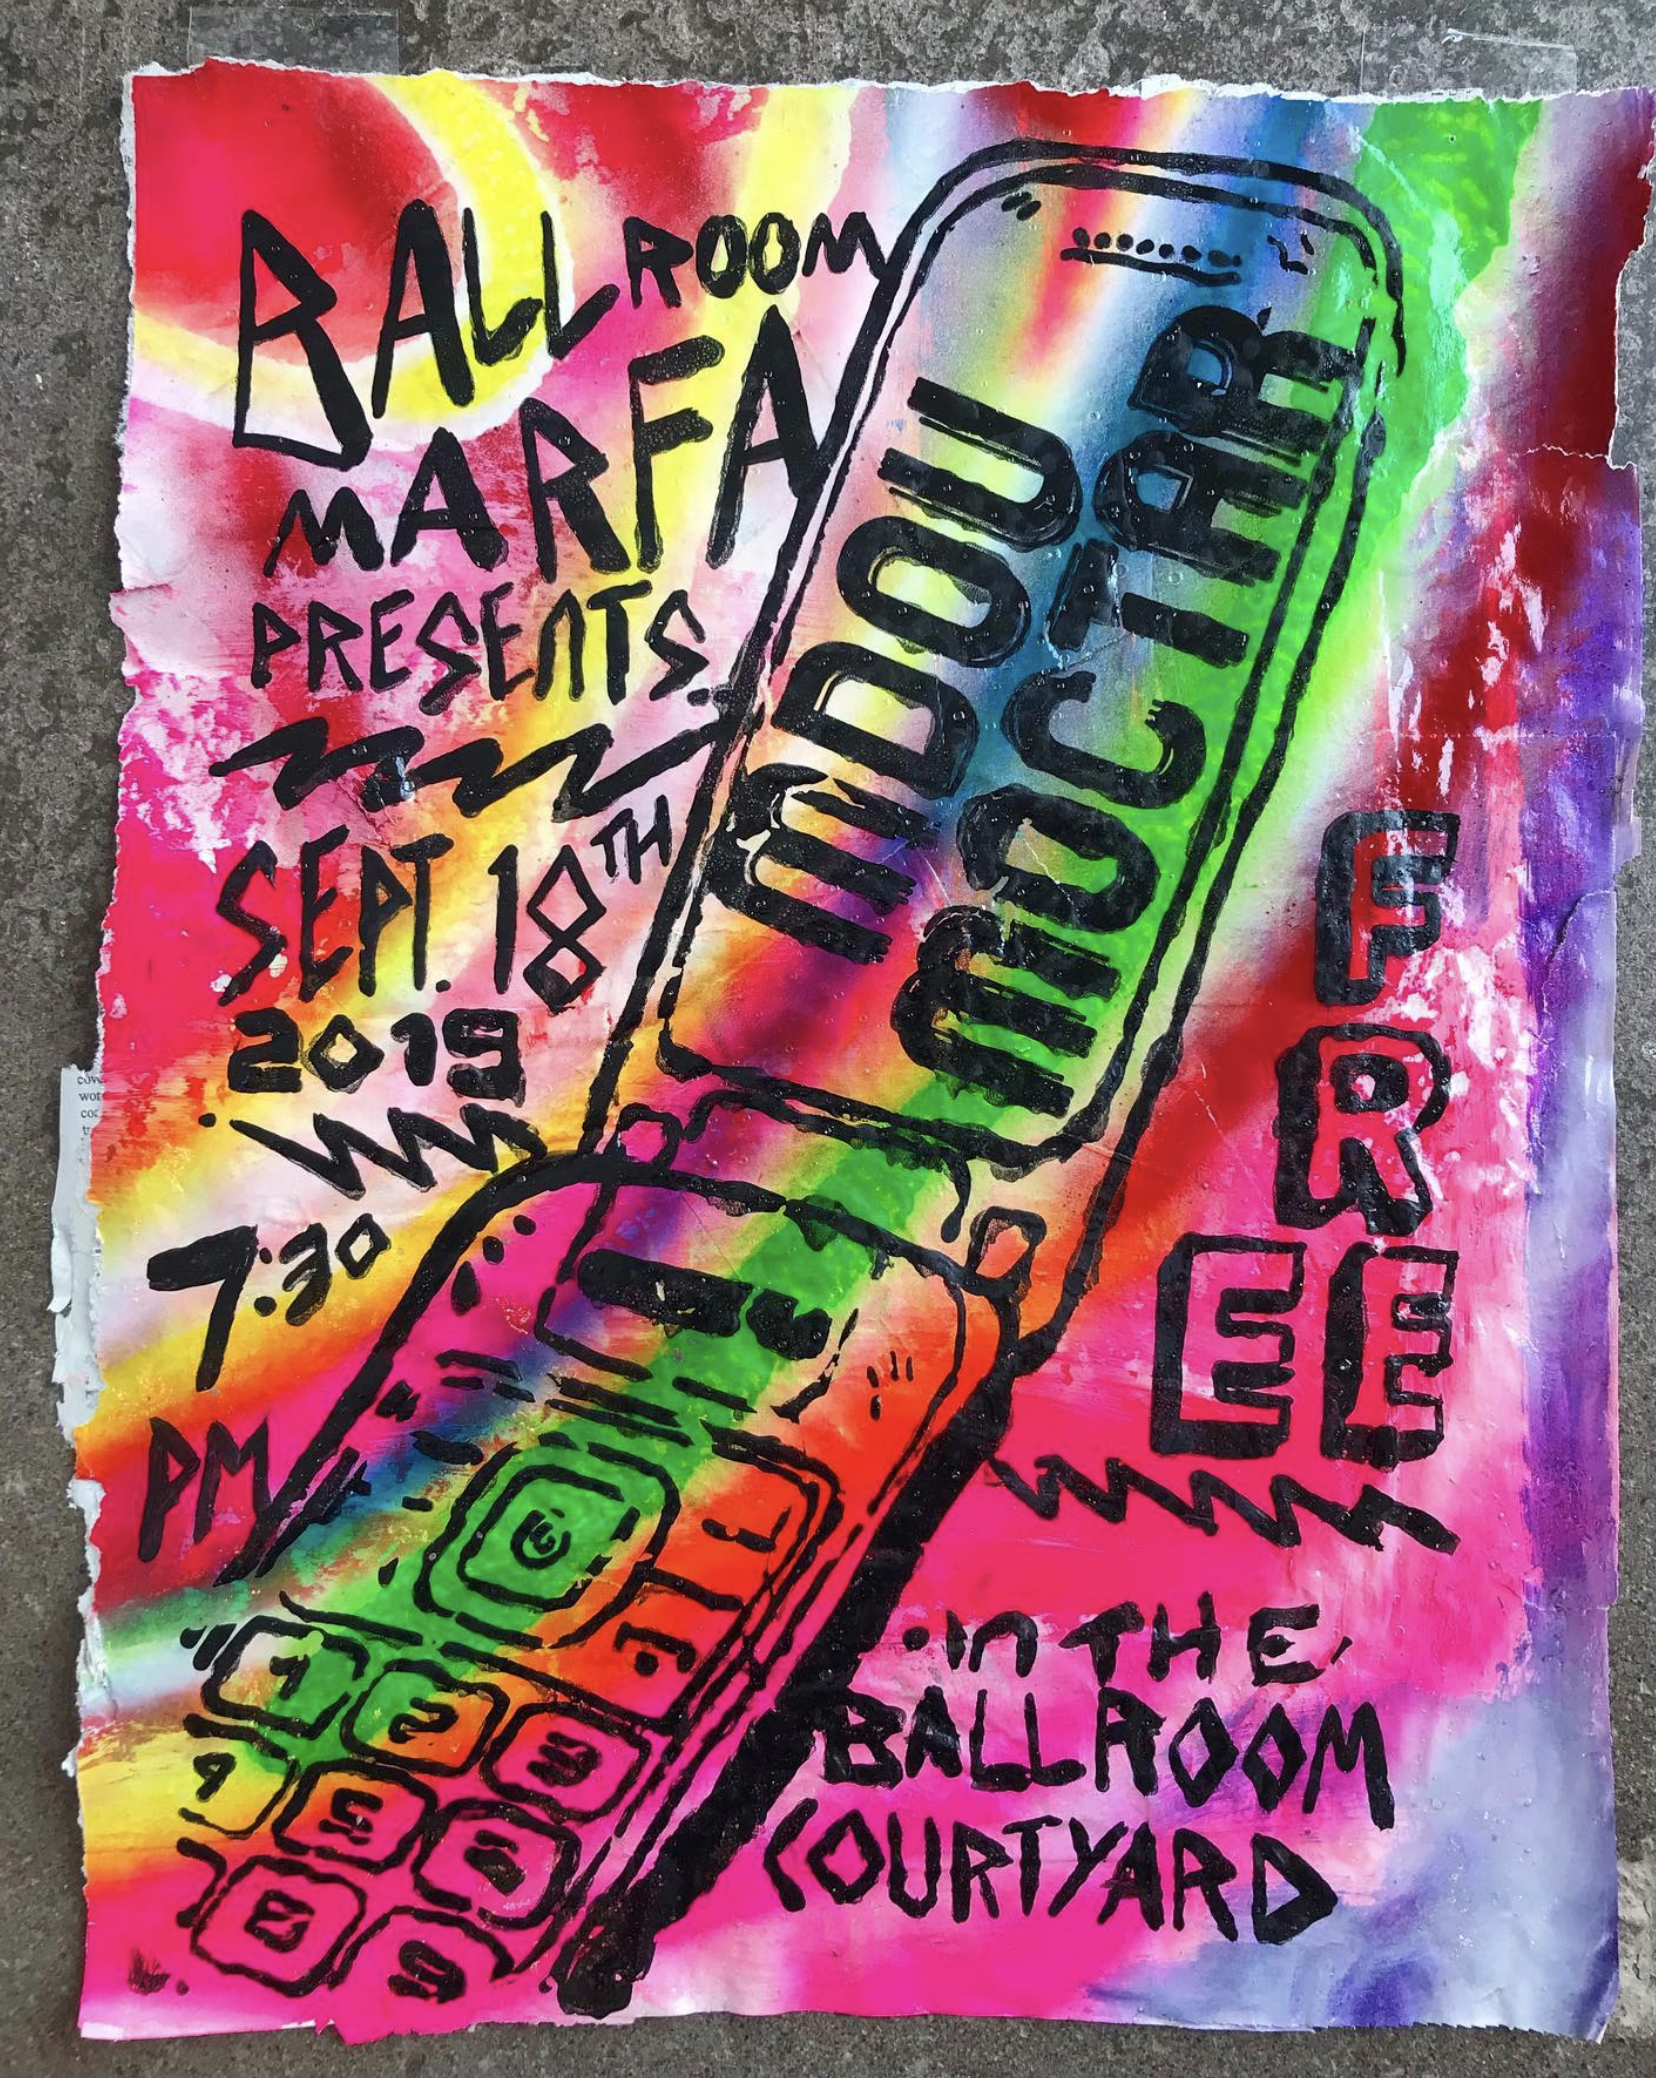 BALLROOM
MARFA
PRESENTS
SEPT. 18TH
2019
7:30
PM
MDOU
MOCTAR
FREE
in THE
BALLROOM
COURTYARD
1 2 3
5
8 9